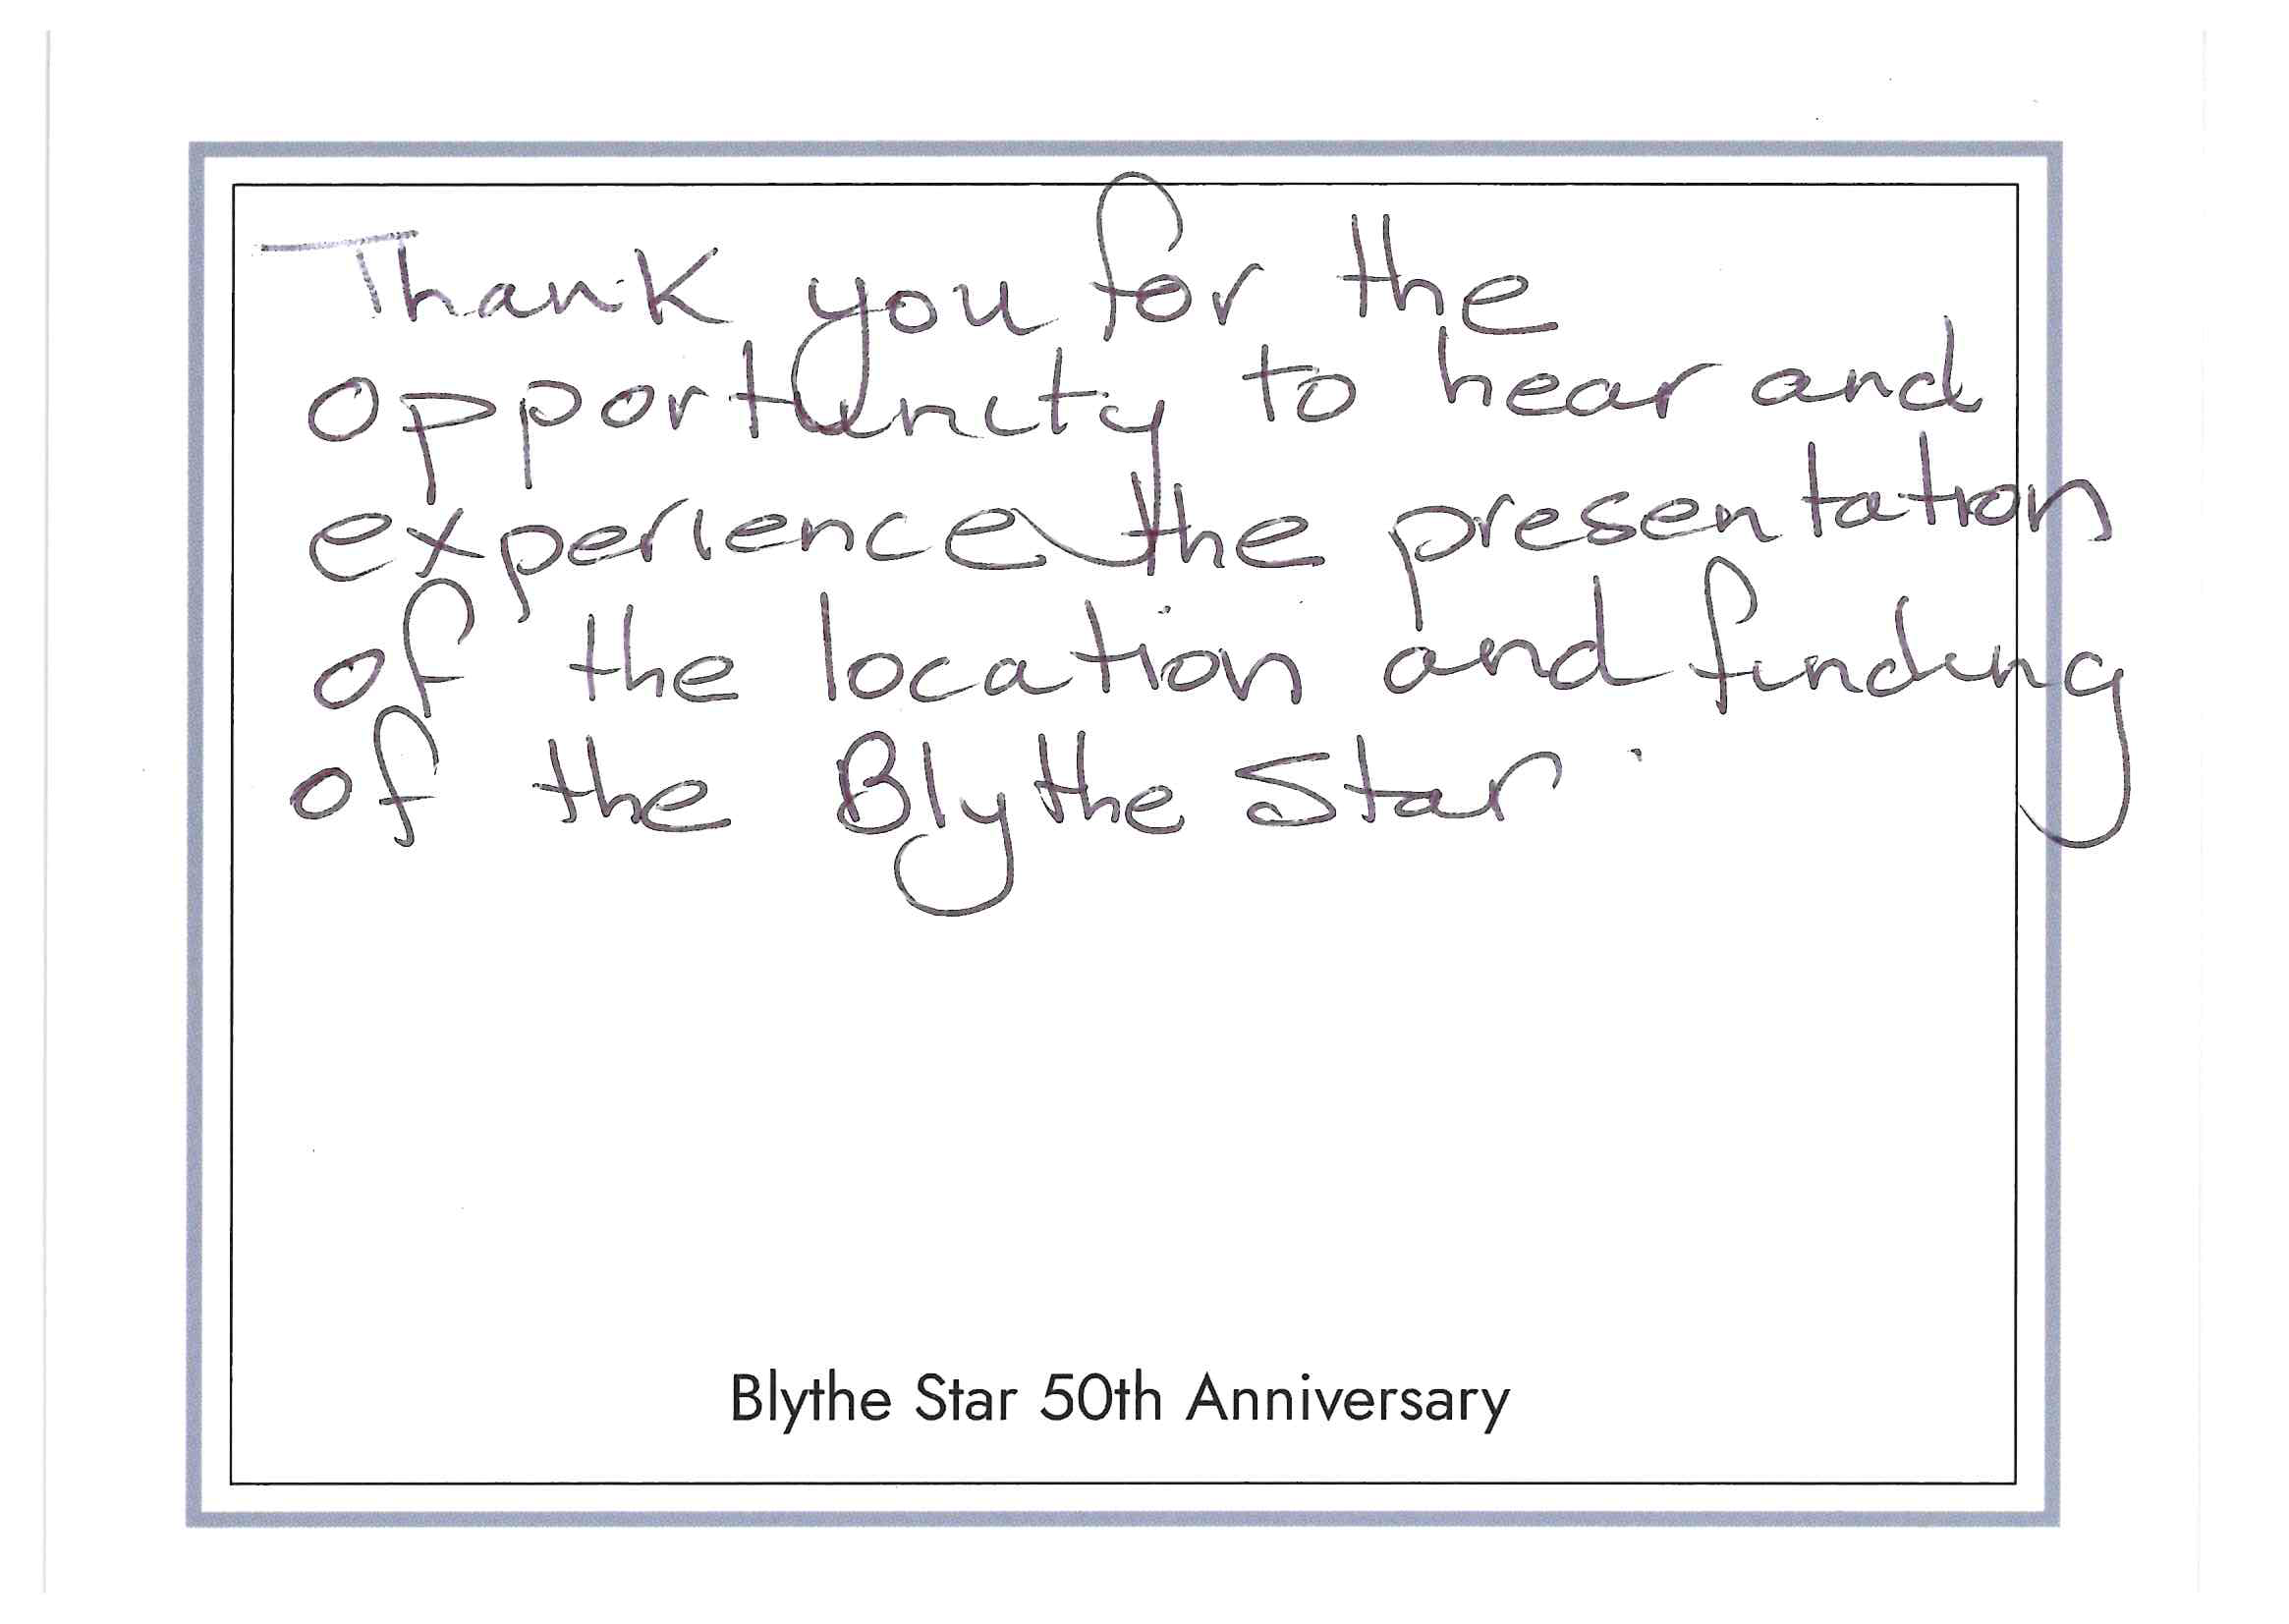 Thank you for the
opportunity to hear and
experience the presentation
of the location and finding
of the Blythe Star.
Blythe Star 50th Anniversary